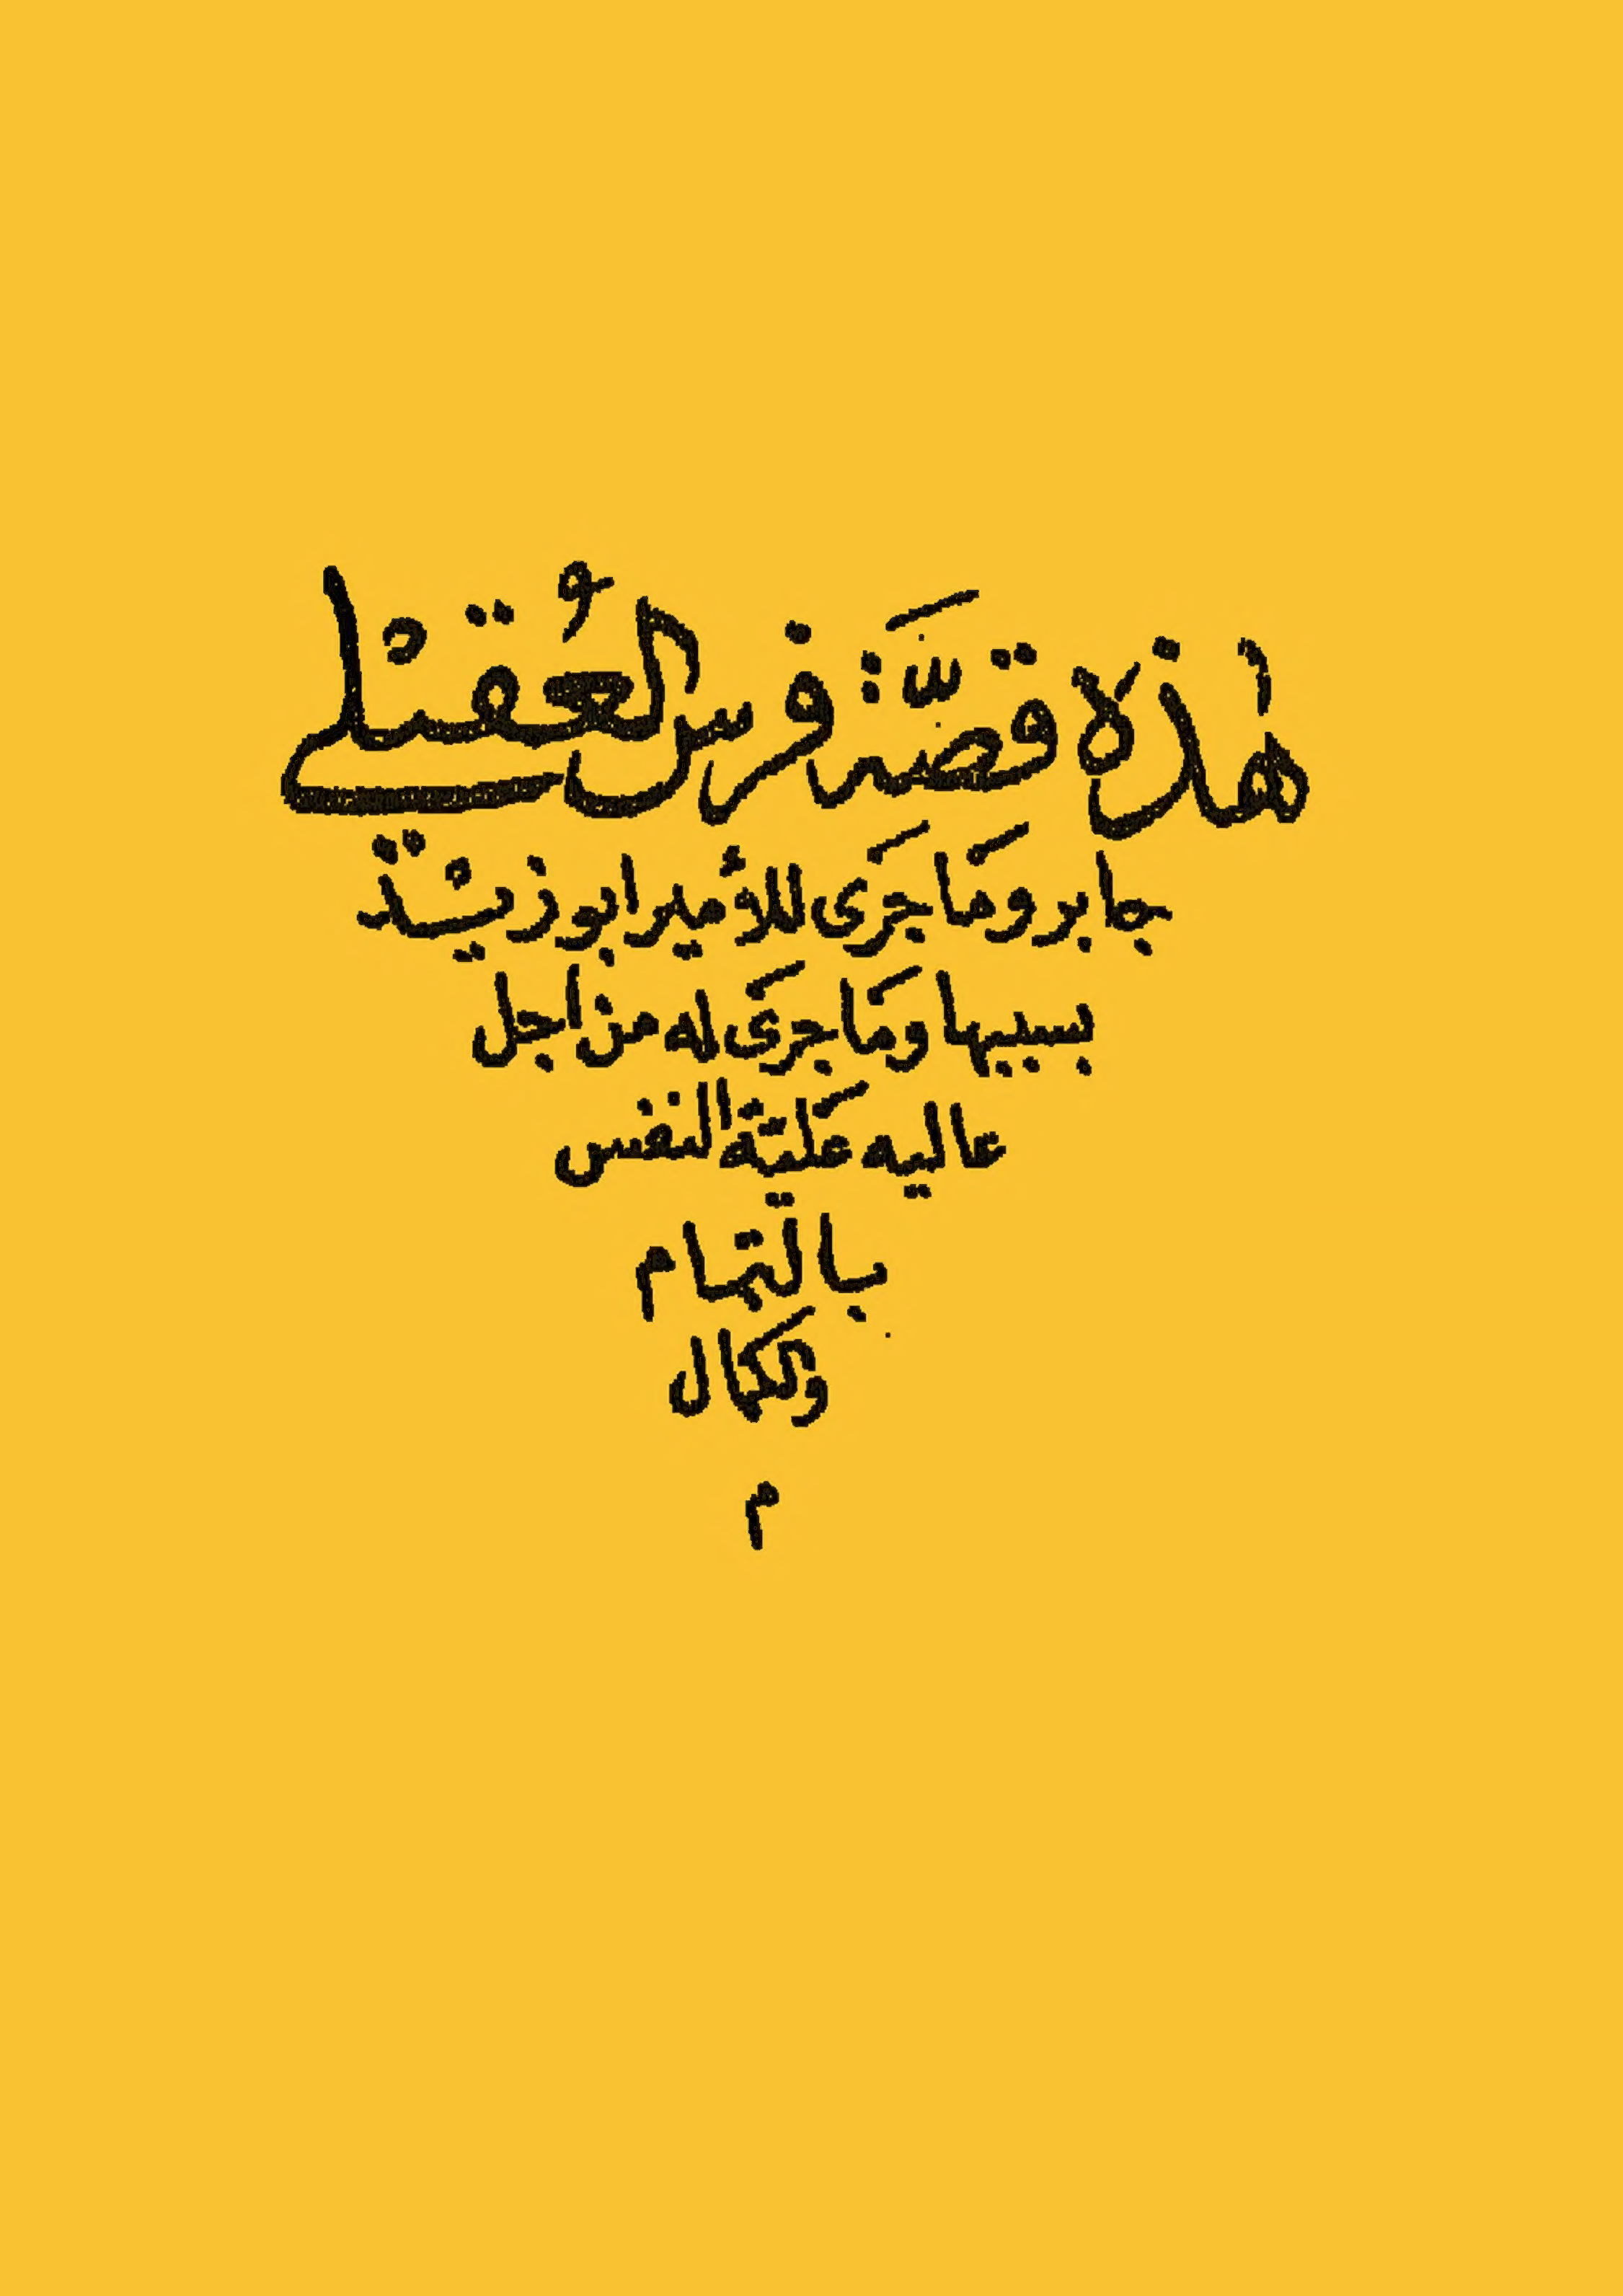 هذه قصَّة فرس العُقيلي
جابر ومَا جَرَى للأمير ابو زيد
بسببها ومَا جرَى له من اجل
عاليه عَليّة النفس
بالتمام
ولكمال
م